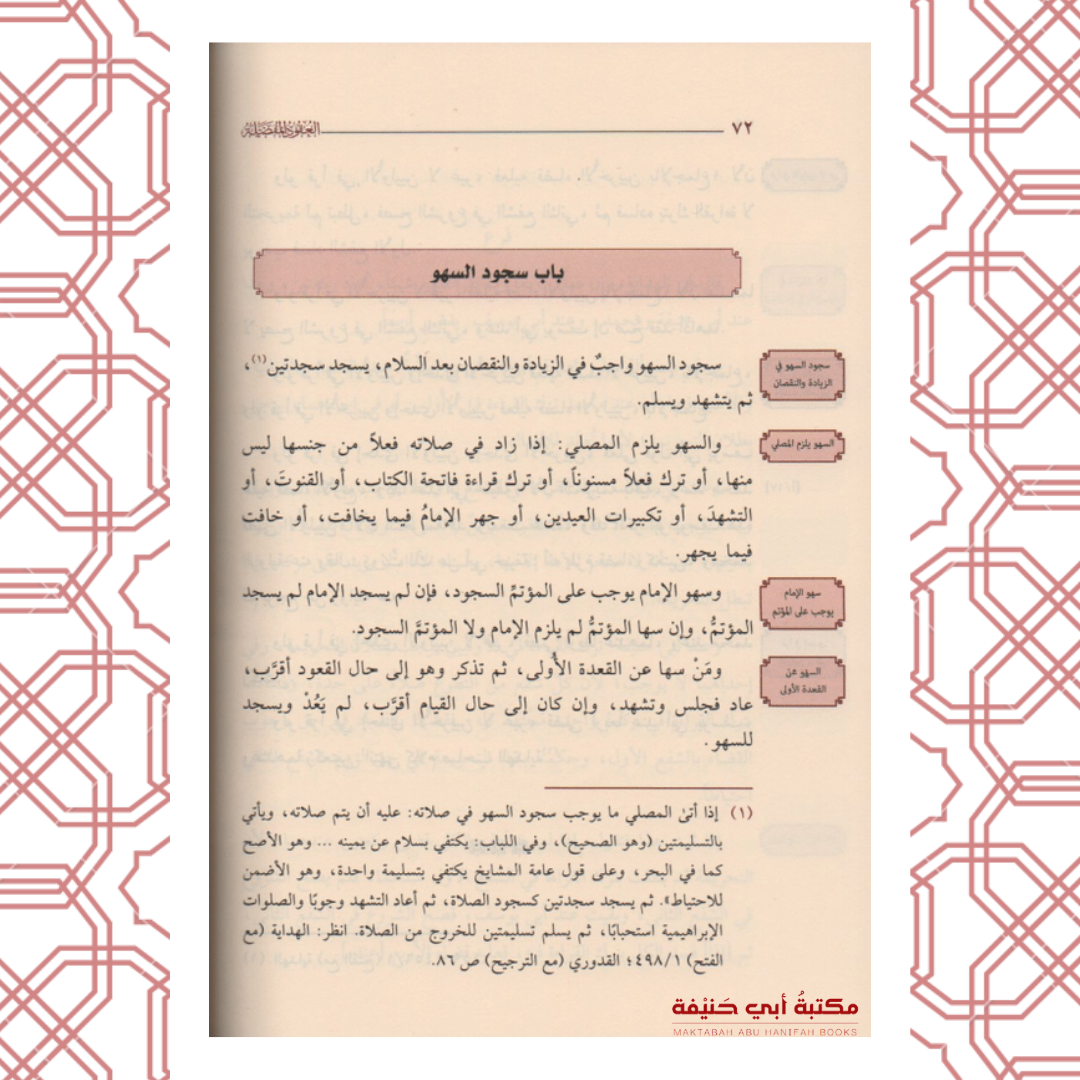 ٧٢
العقود المفصلة
باب سجود السهو
سجود السهو في
الزيادة والنقصان
سجود السهو واجبٌ في الزيادة والنقصان بعد السلام، يسجد سجدتين(١)،
ثم يتشهد ويسلم.
السهو يلزم المصلي
والسهو يلزم المصلي: إذا زاد في صلاته فعلاً من جنسها ليس
منها، أو ترك فعلاً مسنوناً، أو ترك قراءة فاتحة الكتاب، أو القنوتَ، أو
التشهدَ، أو تكبيرات العيدين، أو جهر الإمامُ فيما يخافت، أو خافت
فيما يجهر.
سهو الإمام
يوجب على المؤتم
وسهو الإمام يوجب على المؤتمِّ السجود، فإن لم يسجد الإمام لم يسجد
المؤتمُّ، وإن سها المؤتمُّ لم يلزم الإمام ولا المؤتمَّ السجود.
السهو عن
القعدة الأولى
ومَنْ سها عن القعدة الأُولى، ثم تذكر وهو إلى حال القعود أقرَّب،
عاد فجلس وتشهد، وإن كان إلى حال القيام أقرَّب، لم يَعُدْ ويسجد
للسهو.
(١) إذا أتىٰ المصلي ما يوجب سجود السهو في صلاته: عليه أن يتم صلاته، ويأتي
بالتسليمتين (وهو الصحيح)، وفي اللباب: يكتفي بسلام عن يمينه ... وهو الأصح
كما في البحر، وعلى قول عامة المشايخ يكتفي بتسليمة واحدة، وهو الأضمن
للاحتياط». ثم يسجد سجدتين كسجود الصلاة، ثم أعاد التشهد وجوبًا والصلوات
الإبراهيمية استحبابًا، ثم يسلم تسليمتين للخروج من الصلاة. انظر: الهداية (مع
الفتح) ٤٩٨/١؛ القدوري (مع الترجيح) ص ٨٦.
مكتبةُ أبي حَنيْفة
MAKTABAH ABU HANIFAH BOOKS